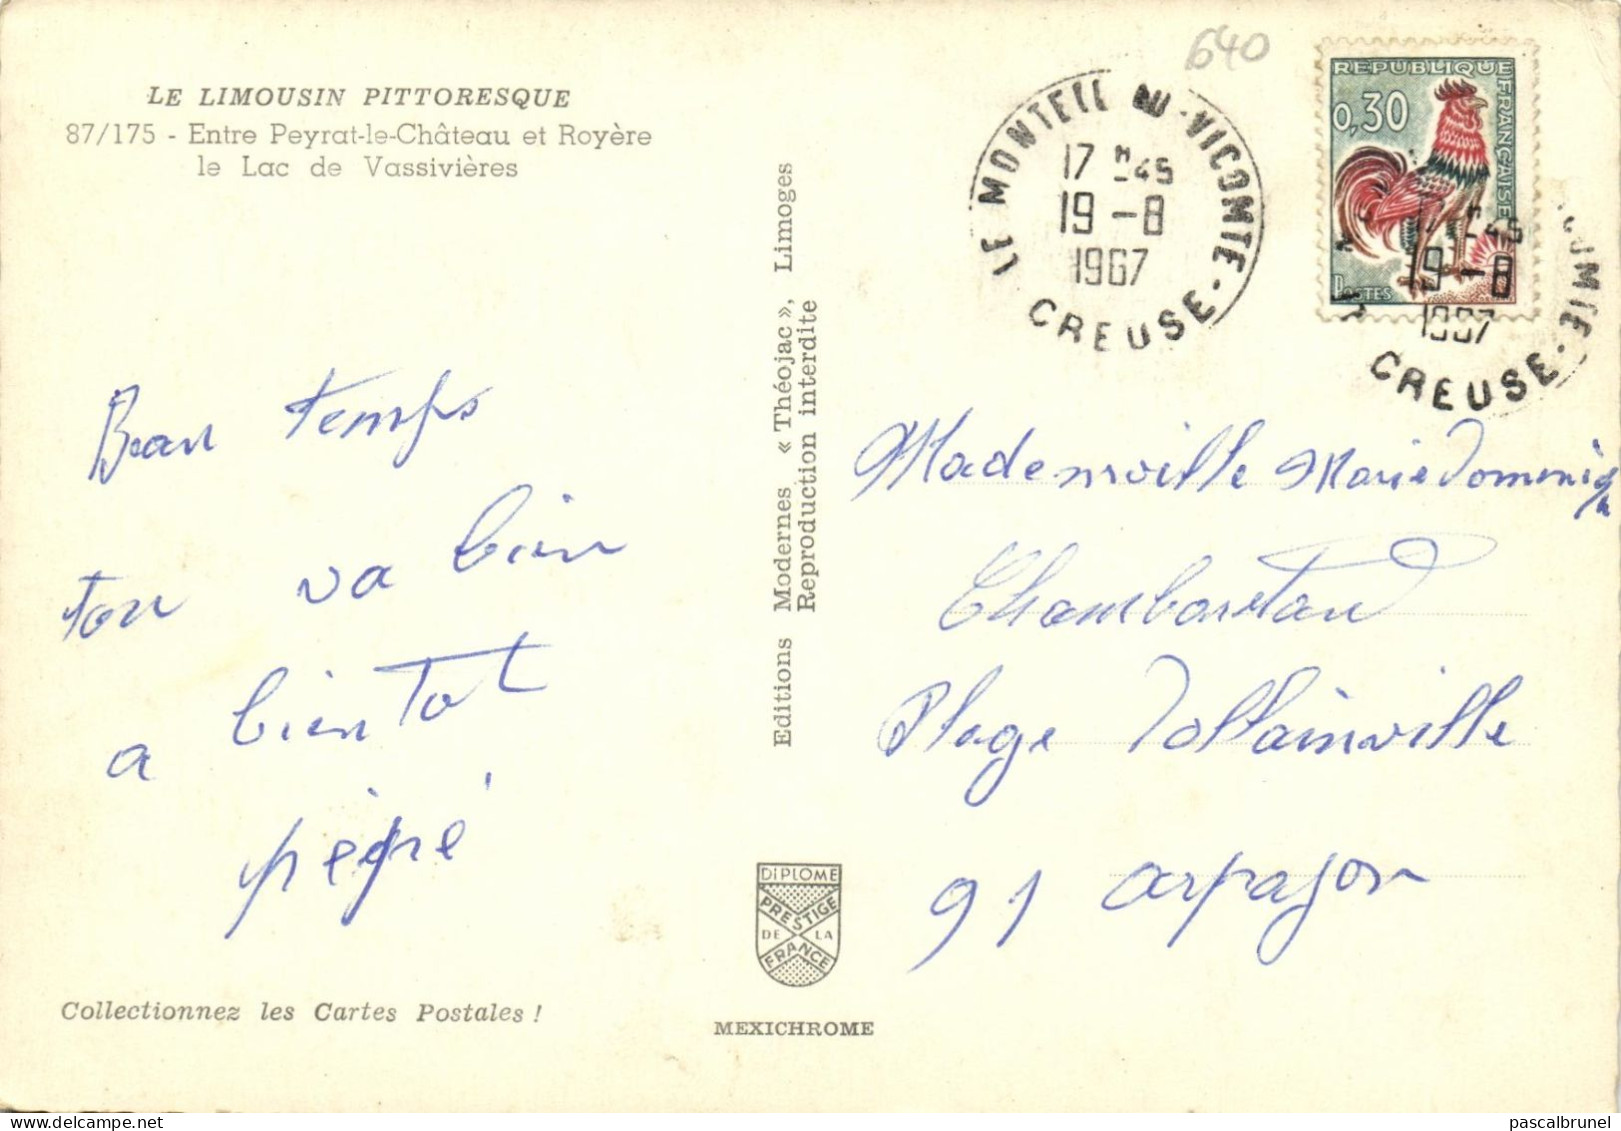 LE LIMOUSIN PITTORESQUE
87/175 - Entre Peyrat-le-Château et Royère
le Lac de Vassivières
Beau temps
tou va bien
a bientot
pépé
Collectionnez les Cartes Postales !
Editions Modernes « Théojac », Limoges
Reproduction interdite
DIPLOME
PRESTIGE
DE LA
FRANCE
MEXICHROME
640
LE MONTEIL AU VICOMTE
17 H -45
19 -8
1967
CREUSE
REPUBLIQUE FRANCAISE
0,30
POSTES
17 H -45
19 -8
1967
CREUSE
Mademoiselle Marie Dominiq
Plage
91 arpajon
pascalbrunel